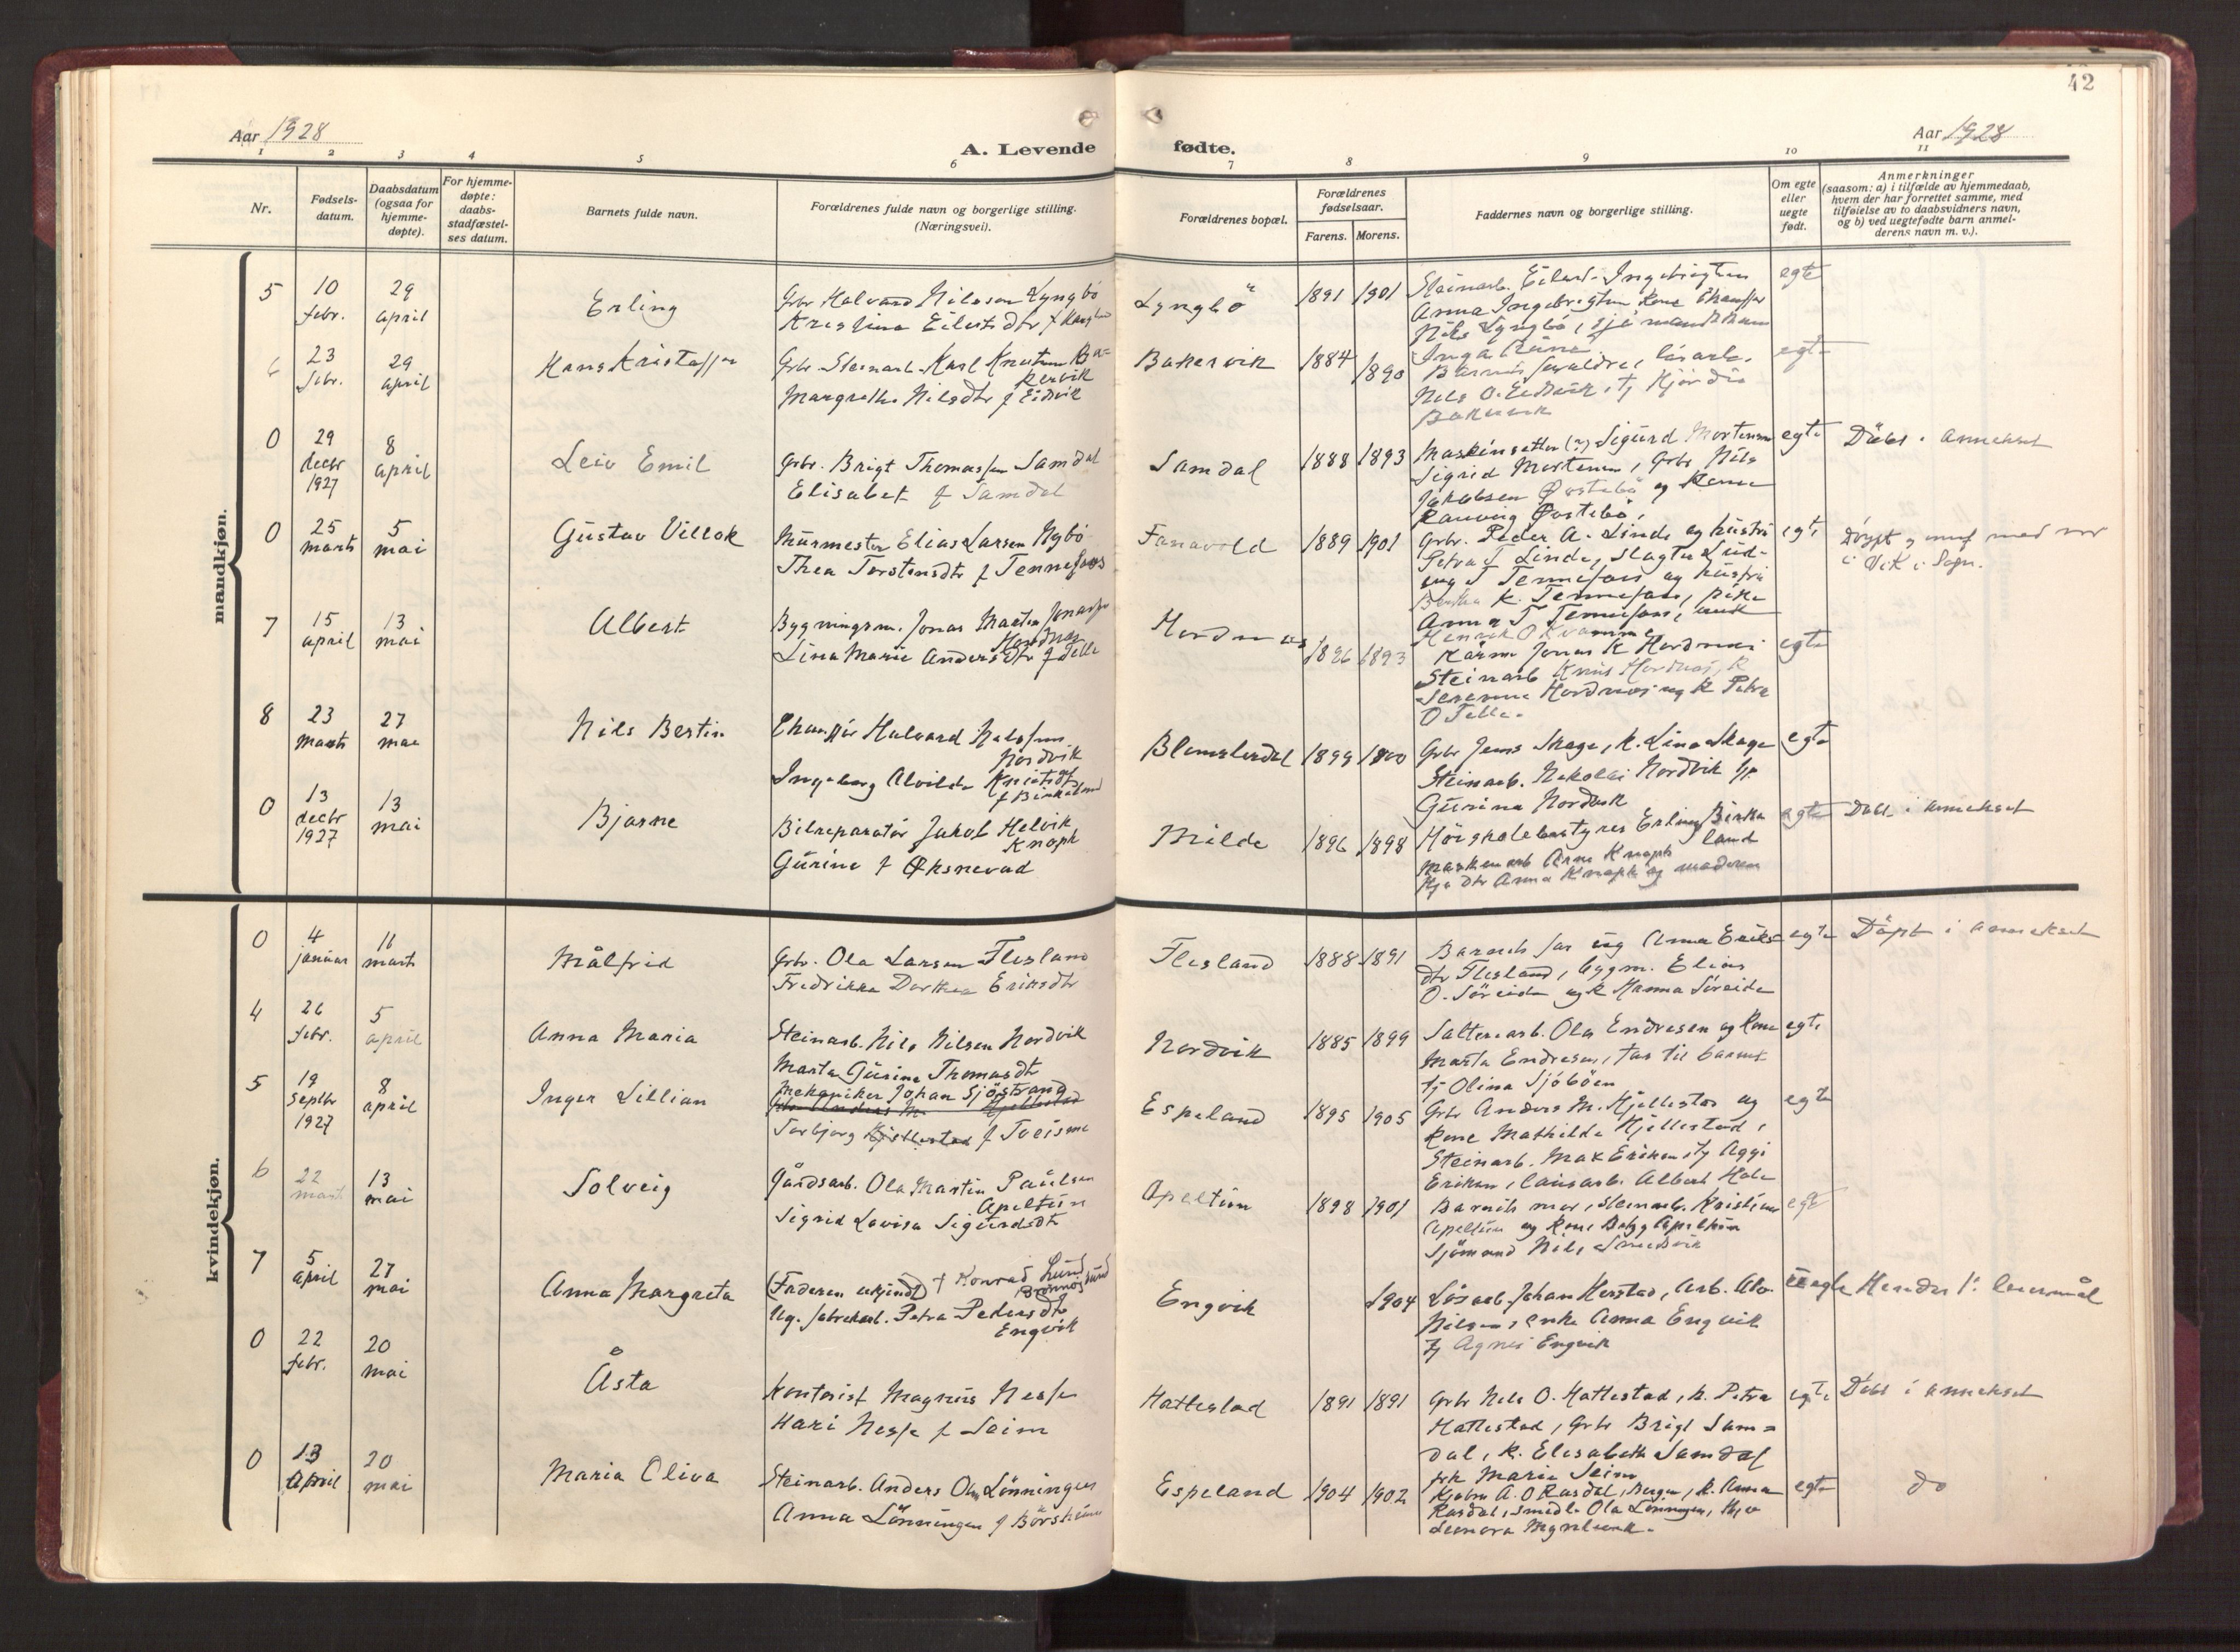 42
Aar 1928
A. Levende fødte.
Aar 1928
1 2 3 4 5 6 7 8 9 10 11
Nr.
Fødsels-
datum.
Daabsdatum
(ogsaa for
hjemme-
døpte).
For hjemme-
døpte:
daabs-
stadfæstel-
ses datum.
Barnets fulde navn.
Forældrenes fulde navn og borgerlige stilling.
(Næringsvei).
Forældrenes bopæl.
Forældrenes
fødselsaar.
Farens. Morens.
Faddernes navn og borgerlige stilling.
Om egte
eller
uegte
født.
Anmerkninger
(saasom: a) i tilfælde av hjemmedaab,
hvem der har forrettet samme, med
tilføielse av to daabsvidners navn,
og b) ved uegtefødte barn anmel-
derens navn m. v.).
mandkjøn.
5
10
febr.
29
april
Erling
Gbr Halvard Nilsson Lyngbö
Kristina Eilertsdtr f
Lyngbö
1891 1901
Steinarb. Eilert Ingebrigtsen
Anna Ingebrigtsen Kone
Nils Lyngbö,
egte
6
23
febr.
29
april
Hans Kristoffer
Gbr. Steinarb. Karl Knutsen Ba-
kervik
Margrethe Nilsdtr f Eidsvik
Bakervik
1884 1890
Inga
Barnets foreldre, lösarb.
Nils O. Eidsvik, tj Hjördis
Bakervik
egte
0
29
decbr
1927
8
april
Leiv Emil
Gbr. Brigt Thomassen Samdal
Elisabet f Samdal
Samdal
1888 1893
Maskinsetter (?) Sigurd Mortensen
Sigrid Mortensen, Gbr Nils
Jakobsen Øvstebö og Kone
Rannveig Øvstebö,
egte
Döbt i annekset
0
25
marts
5
mai
Gustav Villok
Murmester Elias Larsen Nybö
Thea Torstensdtr f Tennefoss
Fanavold
1889 1901
Gbr. Peder A. Linde og hustru
Petra T Linde, slagter Lud-
vig T Tennefoss og husfru
K. Tennefoss, pike
Anna T Tennefoss, enk
Henrik O Kvamme
egte
Döypt med mor
i Vik i Sogn.
7
15
april
13
mai
Albert
Bygningsm. Jonas Martin Jonassen
Hordnes
Lina Marie Andersdtr f Telle
Hordnes
1896 1893
Jonas K Hordnes
Steinarb Knus Hordnes, K
Serenne Hordnes og K Petra
O Telle.
egte
8
23
marts
27
mai
Nils Bertin
Chauffør Halvard Nilssen
Nordvik
Ingeborg Alvilde Knutsdtr
f Birkeland
Blomsterdal
1899 1900
Gbr Jens Skage, K. Lina Skage
Steinarb. Nikolai Nordvik
Gurina Nordvik
egte
0
13
decbr
1927
13
mai
Bjarne
Bilreparatör Jakob Helvik
Knaph
Gurine f Øksnevad
Milde
1896 1898
Höiskolebestyrer Erling Birke
land
maskinarb Arne Knaph
Anna Knaph og moderen
egte
Döbt i annekset
kvindekjøn.
0
4
januar
11
marts
Målfrid
Gbr. Ola Larsen Flesland
Fredrikka Dorthea Eriksdtr
Flesland
1888 1891
Barnets far og Anna Eriks-
dtr Flesland, bygm. Elias
O. Söreide og K Hanna Söreide
egte
Döpt i annekset
4
26
febr.
5
april
Anna Maria
Steinarb. Nils Nilsen Nordvik
Marta Gurine Thomasdtr
Nordvik
1885 1899
Salteriarb. Ola Endresen og Kone
Marta Endresen, far til barnet
tj Olina Sjöböen
egte
5
19
septbr
1927
8
april
Inger Lillian
Mekaniker Johan Sjöstrand
Gbr Anders M. Hjellestad
Torbjorg Hjellestad f Tveisme
Espeland
1895 1905
Gbr Anders M. Hjellestad og
Kone Mathilde Hjellestad,
Steinarb. Max Eriksen, tj Aggi
Eriksen, lausarb. Albert Hole
egte
6
22
marts
13
mai
Solveig
Gårdsarb. Ola Martin Paulsen
Apeltun
Sigrid Lovisa Sigurdsdtr
Apeltun
1898 1901
Barnets mor, steinarb. Kristian
Apeltun og Kone Apeltun
Sjömand Nils Smedsvik
egte
7
5
april
27
mai
Anna Margreta
(Faderen ukjendt) + Konrad Lund
Brönnøysund
Ug. fabrikarb. Petra Pedersdtr
Engvik
Engvik
1904
Lösarb. Johan Herstad, arb. Alv.
Nilsen, enke Anna Engvik
tj Agnes Engvik
uegte
Hendes 1: leiermål
0
22
febr.
20
mai
Åsta
Kontorist Magnus Nesse
Kari Nesse f Seim
Hattestad
1891 1891
Gbr Nils O. Hattestad, K. Petra
Hattestad, Gbr Brigt Sam-
dal, K. Elisabeth Samdal
frk Marie Seim
egte
Döbt i annekset
0
13
april
20
mai
Maria Oliva
Steinarb. Anders Ols. Lönningen
Anna Lönningen f Börsheim
Espeland
1904 1902
Kjøbm A. O Rasdal, Bergen, K. Anna
Rasdal, smedl. Ola Lönningen, Hj. v
Leonora
egte
do